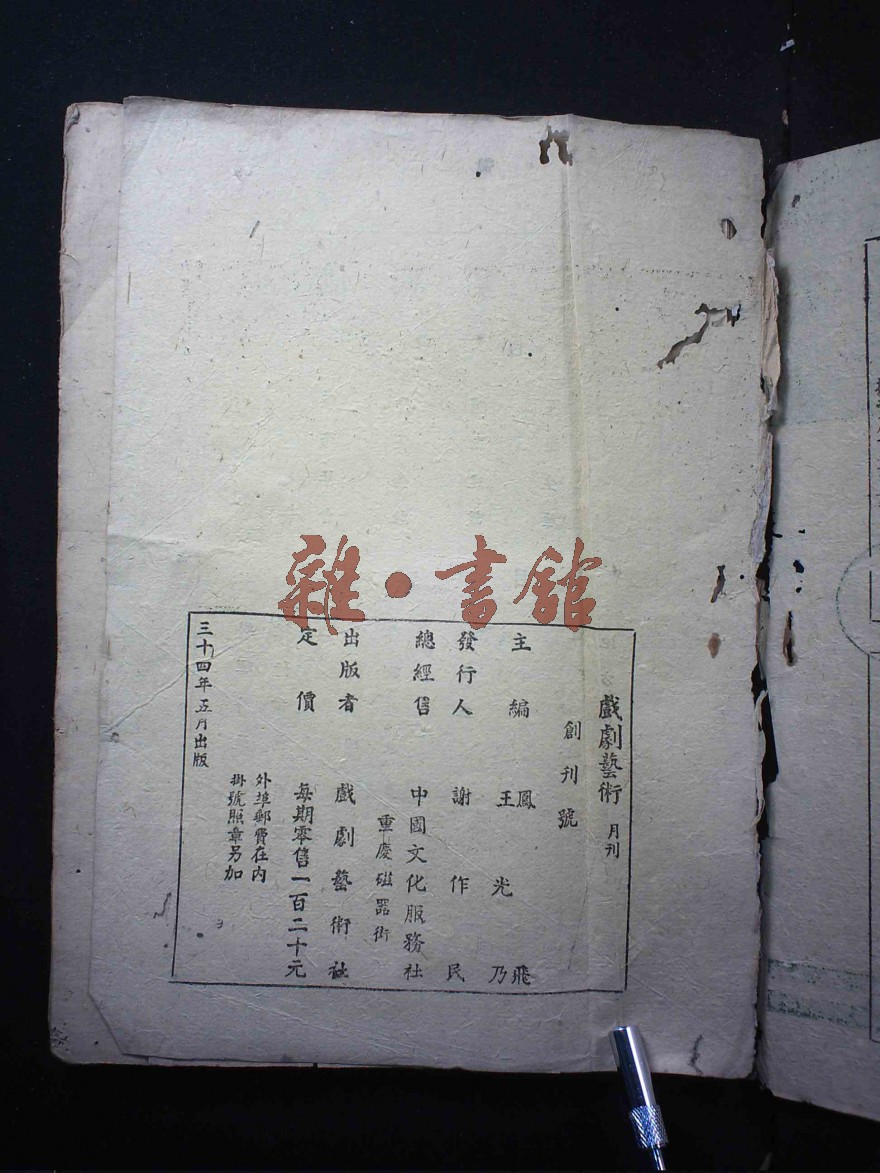 戲劇藝術 月刊
創刊號
主編 鳳飛
王光乃
發行人 謝作民
總經售 中國文化服務社
重慶磁器街
出版者 戲劇藝術社
定價 每期零售一百二十元
外埠郵費在内
掛號照章另加
三十四年五月出版
雜·書館